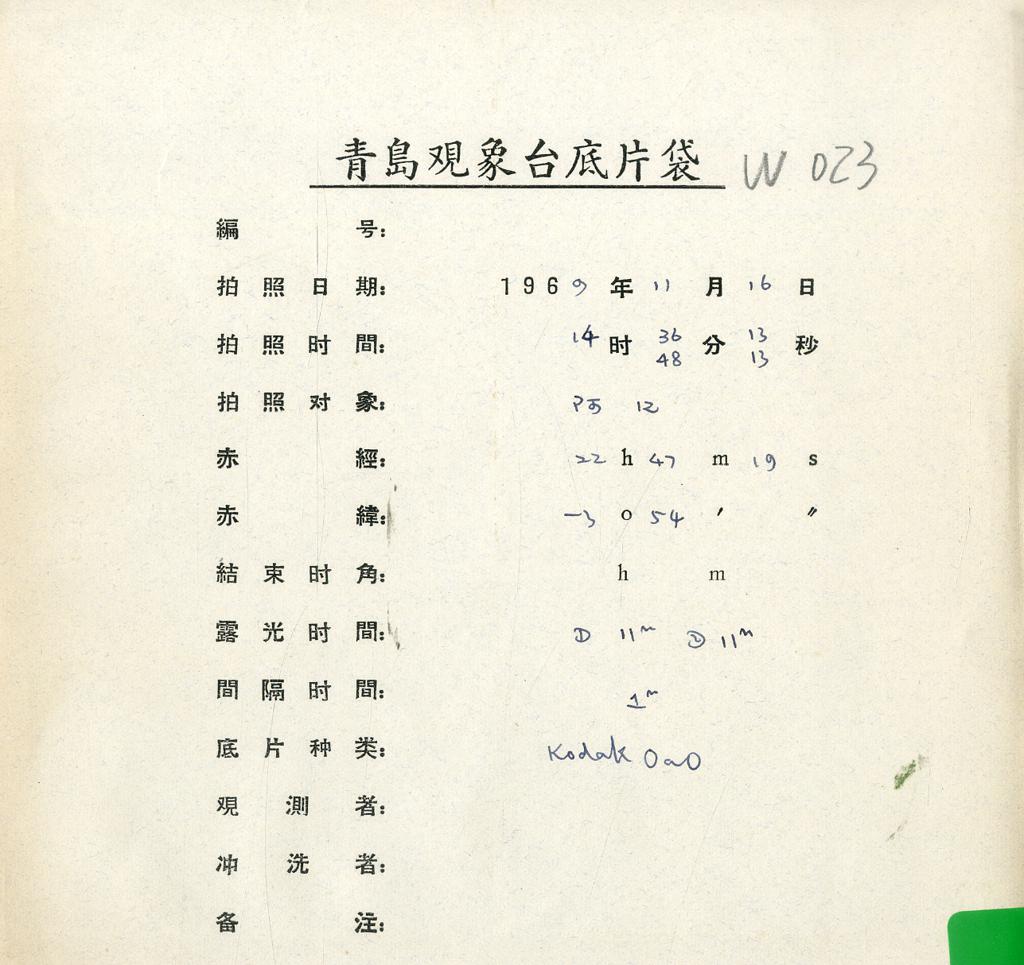 青島观象台底片袋 W 023
編号:
拍照日期: 1969年11月16日
拍照时間: 14时36分13秒
48 13
拍照对象: 阿 12
赤經: 22h47m19s
赤緯: -3o54′ ″
結束时角: h m
露光时間: ① 11ᵐ ② 11ᵐ
間隔时間: 1ᵐ
底片种类: Kodak OaO
观測者:
冲洗者:
备注: